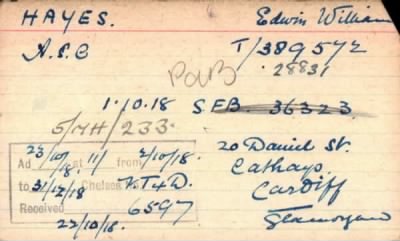 HAYES. Edwin William
A.S.C T/389572
28831
PoWB
1.10.18 S.F.B. 36323
5/MH/233.
23/10/18. at 11/ from 2/10/18. 20 Daniel St.
to 31/12/18 Chelsea F.T&D. Cathays
Received 6597 Cardiff
22/10/18. Glamorgan